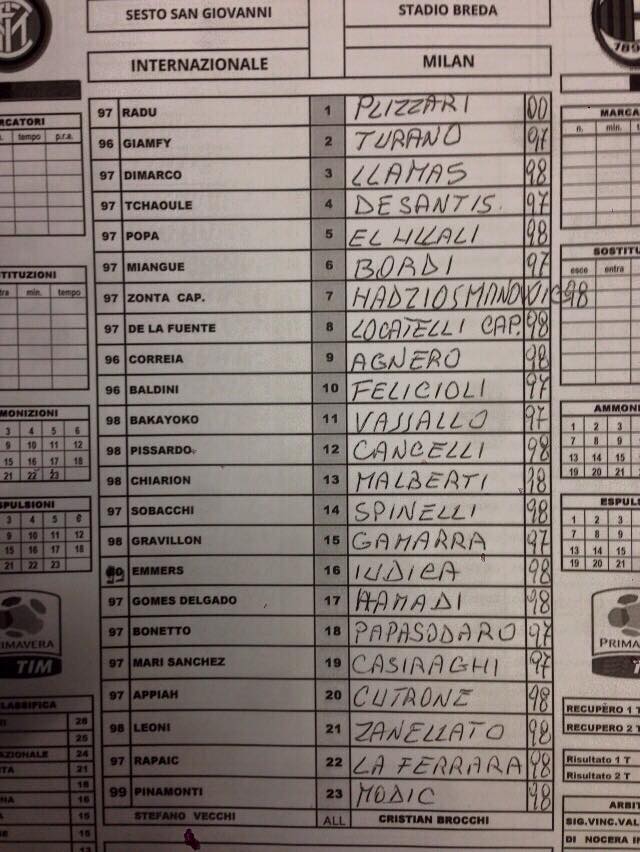 SESTO SAN GIOVANNI STADIO BREDA
INTERNAZIONALE MILAN
97 RADU 1 PLIZZARI 00
96 GIAMFY 2 TURANO 97
97 DIMARCO 3 LLAMAS 98
97 TCHAOULE 4 DESANTIS. 97
97 POPA 5 EL HILALI 98
97 MIANGUE 6 BORDI 97
97 ZONTA CAP. 7 HADZIOSMANOVIC 98
97 DE LA FUENTE 8 LOCATELLI CAP. 98
96 CORREIA 9 AGNERO 98
96 BALDINI 10 FELICIOLI 97
98 BAKAYOKO 11 VASSALLO 97
98 PISSARDO 12 CANCELLI 98
98 CHIARION 13 MALBERTI 98
97 SOBACCHI 14 SPINELLI 98
98 GRAVILLON 15 GAMARRA 97
EMMERS 16 IUDICA 98
97 GOMES DELGADO 17 HAMADI 98
97 BONETTO 18 PAPASODARO 97
97 MARI SANCHEZ 19 CASIRAGHI 97
97 APPIAH 20 CUTRONE 98
98 LEONI 21 ZANELLATO 98
97 RAPAIC 22 LA FERRARA 98
99 PINAMONTI 23 MODIC 98
STEFANO VECCHI ALL CRISTIAN BROCCHI
RCATORI
tempo p.r.e.
TITUZIONI
tra min. tempo
MONIZIONI
3 4 5 6
9 10 11 12
15 16 17 18
21 22 23
SPULSIONI
3 4 5 6
9 10 11 12
15 16 17 18
21 22 23
RIMAVERA
TIM
CLASSIFICA
28
25
AZIONALE 24
TA 21
18
NA 16
15
NE 15
13
789
MARCA
n. min.
SOSTITU
esce entra
AMMONI
1 2 3
7 8 9
13 14 15
19 20 21
ESPUL
1 2 3
7 8 9
13 14 15
19 20 21
PRIMA
RECUPERO 1 T
RECUPERO 2 T
Risultato 1 T
Risultato 2 T
ARBIT
SIG.VINC.VAL
DI NOCERA IN